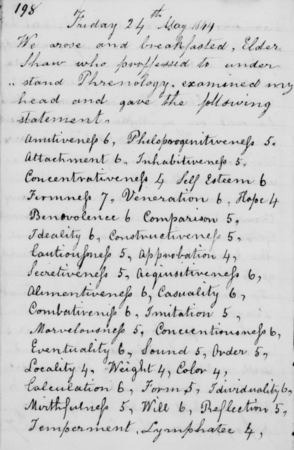 198
Friday 24th May 1844
We arose and breakfasted, Elder
Shaw who proffessed to under
stand Phrenology, examined my
head and gave the following
statement.
Amitiveness 6, Philoprogenitiveness 5.
Attachment 6, Inhabitiveness 5.
Concentrativeness 4 Self Esteem 6
Firmness 7, Veneration 6, Hope 4
Benovolence 6 Comparison 5,
Ideality 6, Constructiveness 5,
Cautiousness 5, Approbation 4,
Secretiveness 5, Acquisitiveness 6,
Alimentiveness 6, Casuality 6,
Combativeness 6, Imitation 5,
Marvelousness 5, Concentiousness 6,
Eventuality 6, Sound 5, Order 5,
Locality 4, Weight 4, Color 4,
Calculation 6, Form 5, Idividuality 6,
Mirthfulness 5, Wilt 6, Reflection 5,
Temperment, Lymphatec 4,